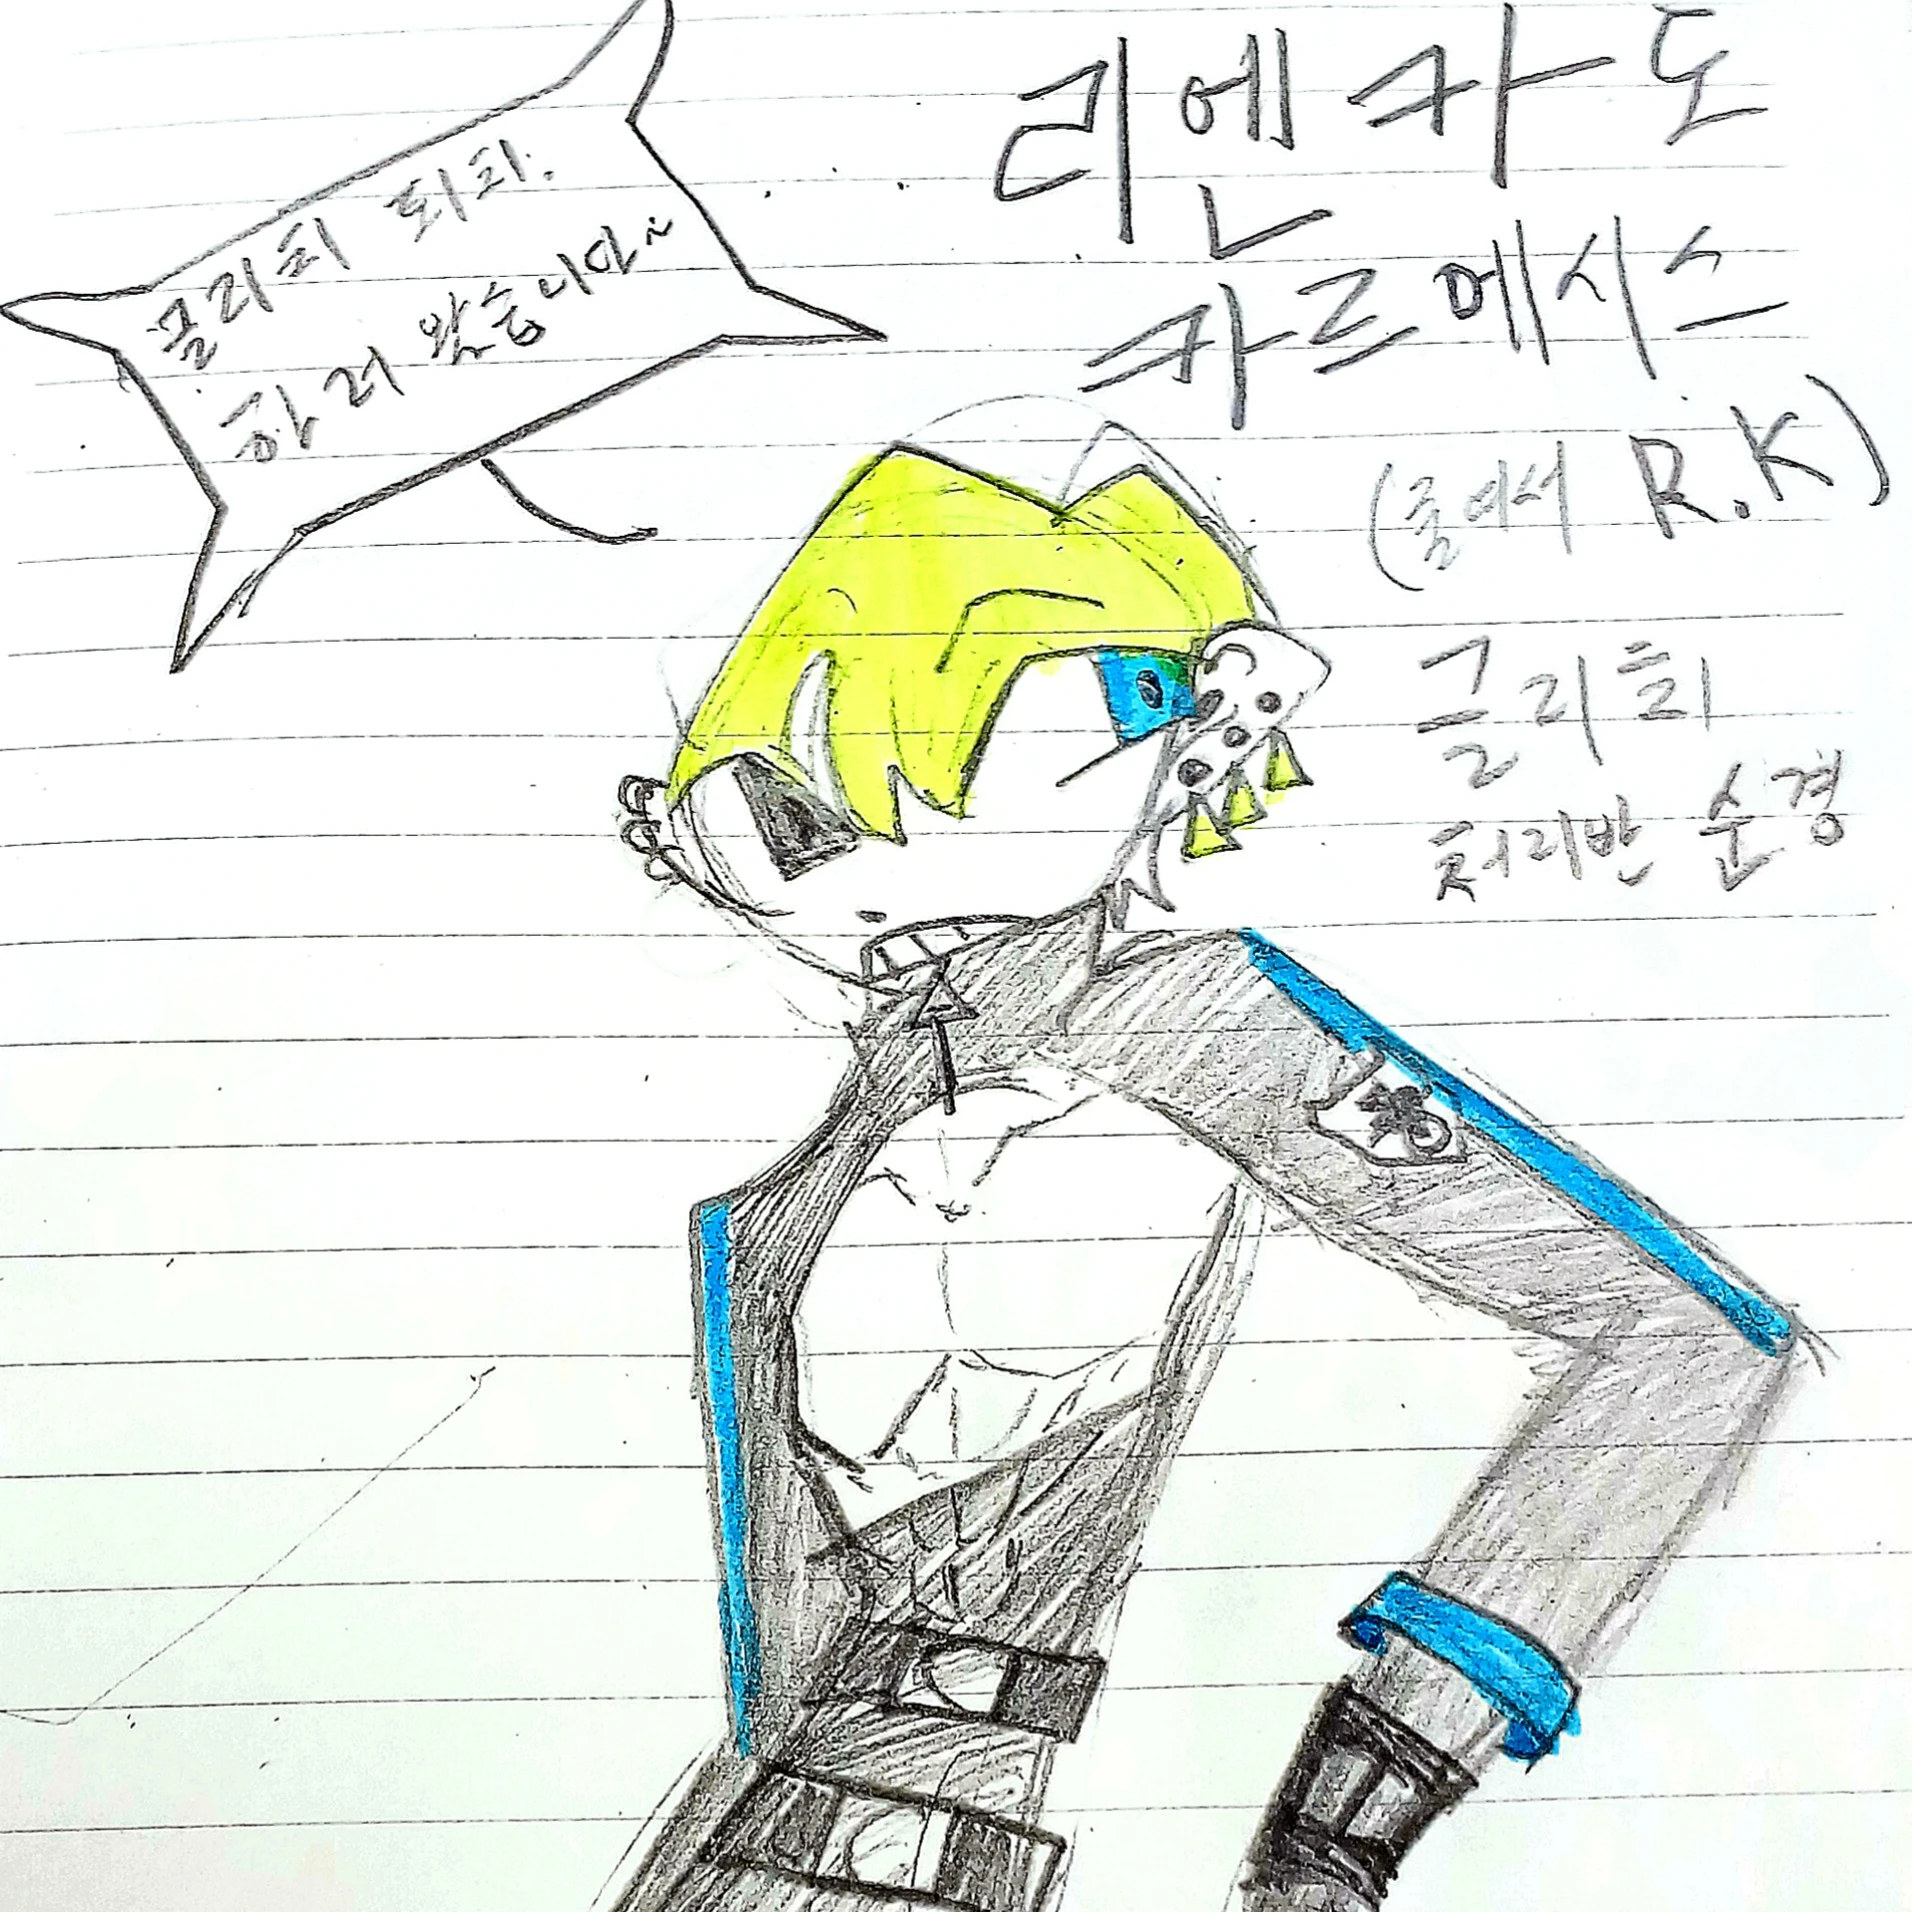 글리취 퇴치.
하러 왔습니다~
리엔카도
카르메시스
(줄여서 R.K)
글리취
처리반 순경